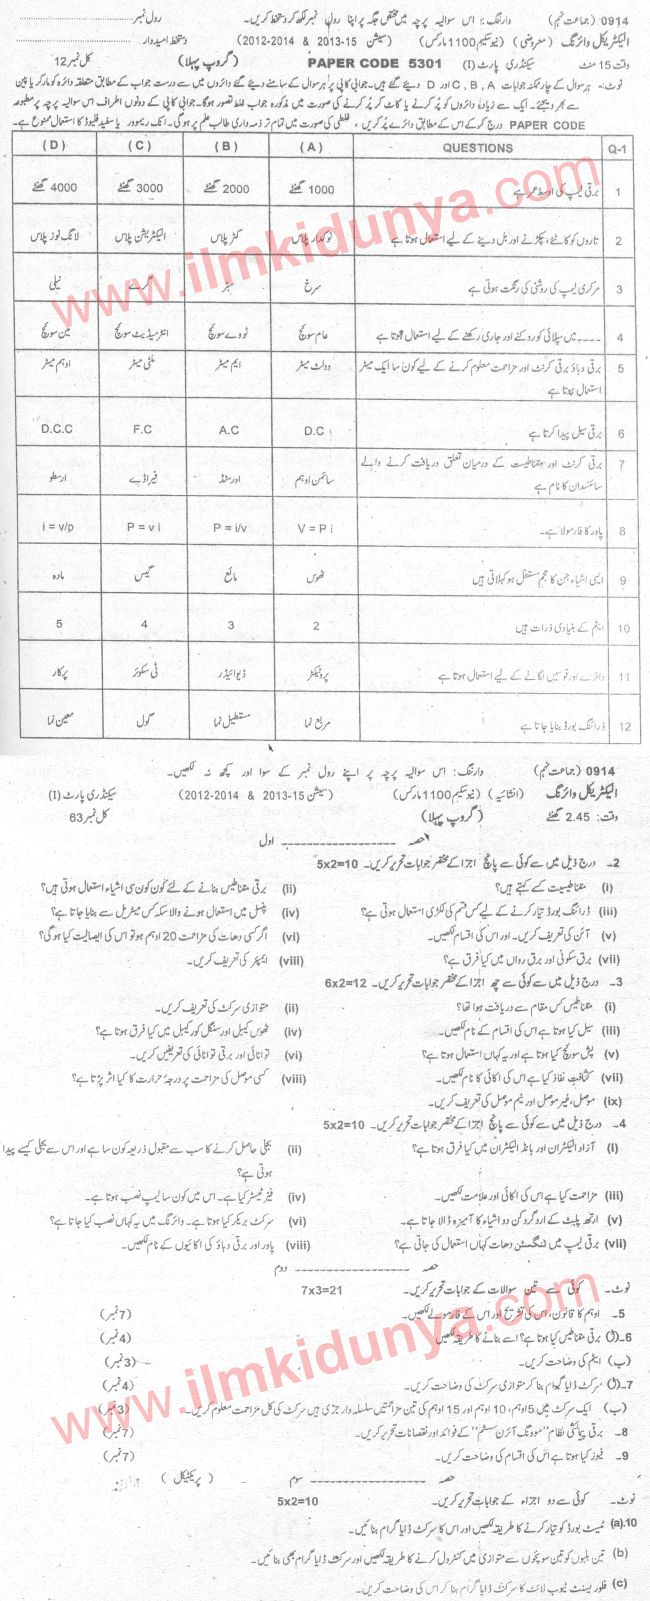 0914 (جماعت نہم) وارننگ: اس سوالیہ پرچہ میں مختص جگہ پر اپنا رول نمبر لکھ کر دستخط کریں۔ رول نمبر
الیکٹریکل وائرنگ (معروضی) (نیو سکیم 1100 مارکس) (سیشن 15-2013 & 2014-2012) دستخط امیدوار
وقت 15 منٹ سیکنڈری پارٹ (I) PAPER CODE 5301 (گروپ پہلا) کل نمبر 12
نوٹ:۔ ہر سوال کے چار ممکنہ جوابات C, B, A اور D دیئے گئے ہیں۔ جوابی کاپی پر ہر سوال کے سامنے دیئے گئے دائروں میں سے درست جواب کے مطابق متعلقہ دائرہ کو مارکر یا پین
سے بھر دیجئے۔ ایک سے زیادہ دائروں کو پُر کرنے یا کاٹ کر پُر کرنے کی صورت میں مذکورہ جواب غلط تصور ہوگا۔ جوابی کاپی کے دونوں اطراف اس سوالیہ پرچہ پر مطبوعہ
PAPER CODE درج کرکے اس کے مطابق دائرے پُر کریں، غلطی کی صورت میں تمام تر ذمہ داری طالب علم پر ہوگی۔ انک ریموور یا سفید فلیوڈ کا استعمال ممنوع ہے۔
Q-1 QUESTIONS (A) (B) (C) (D)
1 برقی لیمپ کی اوسط عمر ہے 1000 گھنٹے 2000 گھنٹے 3000 گھنٹے 4000 گھنٹے
2 تاروں کو کاٹنے، پکڑنے اور بل دینے کے لیے استعمال ہوتا ہے نوکدار پلاس کٹر پلاس الیکٹریشن پلاس لانگ نوز پلاس
3 مرکری لیمپ کی روشنی کی رنگت ہوتی ہے سرخ سبز گرے نیلی
4 ۔۔۔۔ میں سپلائی کو روکنے اور جاری رکھنے کے لیے استعمال ہوتا ہے عام سوئچ ٹو وے سوئچ انٹرمیڈیٹ سوئچ مین سوئچ
5 برقی دباؤ برقی کرنٹ اور مزاحمت معلوم کرنے کے لیے کون سا ایک میٹر استعمال ہوتا ہے وولٹ میٹر ایم میٹر ملٹی میٹر اوہم میٹر
6 برقی سیل پیدا کرتا ہے D.C A.C F.C D.C.C
7 برقی کرنٹ اور مقناطیست کے درمیان تعلق دریافت کرنے والے سائنسدان کا نام ہے سائمن اوہم اورسٹڈ فیراڈے ارسطو
8 پاور کا فارمولا ہے۔ V = P i P = i/v P = v i i = v/p
9 ایسی اشیاء جن کا حجم مستقل ہو کہلاتی ہیں ٹھوس مائع گیس مادہ
10 ایٹم کے بنیادی ذرات ہیں 2 3 4 5
11 دائرے اور قوسیں لگانے کے لیے استعمال ہوتا ہے پروٹیکٹر ڈیوائیڈر ٹی سکوئر پرکار
12 ڈرائنگ بورڈ بنایا جاتا ہے مربع نما مستطیل نما گول معین نما
0914 (جماعت نہم) وارننگ: اس سوالیہ پرچہ پر اپنے رول نمبر کے سوا اور کچھ نہ لکھیں۔
الیکٹریکل وائرنگ (انشائیہ) (نیو سکیم 1100 مارکس) (سیشن 15-2013 & 2014-2012) سیکنڈری پارٹ (I)
وقت: 2.45 گھنٹے (گروپ پہلا) کل نمبر 63
حصہ ------------ اول
2- درج ذیل میں سے کوئی سے پانچ اجزا کے مختصر جوابات تحریر کریں۔ 5x2=10
(i) مقناطیسیت کسے کہتے ہیں؟ (ii) برقی مقناطیس بنانے کے لئے کون کون سی اشیاء استعمال ہوتی ہیں؟
(iii) ڈرائنگ بورڈ تیار کرنے کے لیے کس قسم کی لکڑی استعمال ہوتی ہے؟ (iv) پنسل میں استعمال ہونے والا سکہ کس میٹریل سے بنایا جاتا ہے؟
(v) آئن کی تعریف کریں۔ اور اس کی اقسام لکھیں۔ (vi) اگر کسی دھات کی مزاحمت 20 اوہم ہو تو اس کی ایصالیت کیا ہوگی؟
(vii) برق سکونی اور برق رواں میں کیا فرق ہے؟ (viii) ایمپئر کی تعریف کریں۔
3- درج ذیل میں سے کوئی سے چھ اجزا کے مختصر جوابات تحریر کریں۔ 6x2=12
(i) مقناطیس کس مقام سے دریافت ہوا تھا؟ (ii) متوازی سرکٹ کی تعریف کریں۔
(iii) سیل کیا ہوتا ہے اس کی اقسام کے نام لکھیں۔ (iv) ٹھوس کیبل اور سنگل کور کیبل میں کیا فرق ہوتا ہے؟
(v) پش سوئچ کیا ہوتا ہے اور یہ کہاں استعمال ہوتا ہے؟ (vi) توانائی اور برقی توانائی کی تعریفیں کریں۔
(vii) کثافتِ نفاذ کیا ہے اس کی اکائی کا نام لکھیں۔ (viii) کسی موصل کی مزاحمت پر درجہ حرارت کا کیا اثر پڑتا ہے؟
(ix) موصل، غیر موصل اور نیم موصل کی تعریف کریں۔
4- درج ذیل میں سے کوئی سے پانچ اجزا کے مختصر جوابات تحریر کریں۔ 5x2=10
(i) آزاد الیکٹران اور بانڈ الیکٹران میں کیا فرق ہوتا ہے؟ (ii) بجلی حاصل کرنے کا سب سے مقبول ذریعہ کون سا ہے اور اس سے بجلی کیسے پیدا
ہوتی ہے؟
(iii) مزاحمت کیا ہے اس کی اکائی اور علامت لکھیں۔ (iv) فیز ٹیسٹر کیا ہے۔ اس میں کون سا لیمپ نصب ہوتا ہے۔
(v) ارتھ پلیٹ کے ارد گرد کن دو اشیاء کا آمیزہ ڈالا جاتا ہے۔ (vi) سرکٹ بریکر کیا ہوتا ہے۔ وائرنگ میں یہ کہاں نصب کیا جاتا ہے؟
(vii) برقی لیمپ میں ٹنگسٹن دھات کہاں استعمال کی جاتی ہے؟ (viii) پاور اور برقی دباؤ کی اکائیوں کے نام لکھیں۔
حصہ ------------ دوم
نوٹ۔ کوئی سے تین سوالات کے جوابات تحریر کریں۔ 7x3=21
5- اوہم کا قانون، اس کی تشریح اور اس کے فارمولے لکھیں۔ (7 نمبر)
6-(ا) برقی مقناطیس کیا ہوتا ہے؟ اسے بنانے کا طریقہ لکھیں۔ (4 نمبر)
(ب) ایٹم کی وضاحت کریں۔ (3 نمبر)
7-(ا) سرکٹ ڈایا گرام بنا کر متوازی سرکٹ کی وضاحت کریں۔ (4 نمبر)
(ب) ایک سرکٹ میں 5 اوہم، 10 اوہم اور 15 اوہم کی تین مزاحمتیں سلسلہ وار جڑی ہیں سرکٹ کی کل مزاحمت معلوم کریں۔ (3 نمبر)
8- برقی پیمائشی نظام "موونگ آئرن سسٹم" کے فوائد اور نقصانات تحریر کریں۔ (7 نمبر)
9- فیوز کیا ہوتا ہے اس کی اقسام کی وضاحت کریں۔ (7 نمبر)
حصہ ------------ سوم (پریکٹیکل)
نوٹ۔ کوئی سے دو اجزاء کے جوابات تحریر کریں۔ 5x2=10
10.(a) ٹیسٹ بورڈ کو تیار کرنے کا طریقہ لکھیں اور اس کا سرکٹ ڈایا گرام بنائیں۔
(b) تین بلبوں کو تین سوئچوں سے متوازی میں کنٹرول کرنے کا طریقہ لکھیں اور سرکٹ ڈایا گرام بھی بنائیں۔
(c) فلوریسنٹ ٹیوب لائٹ کا سرکٹ ڈایا گرام بنا کر اس کی وضاحت کریں۔
www.ilmkidunya.com
www.ilmkidunya.com